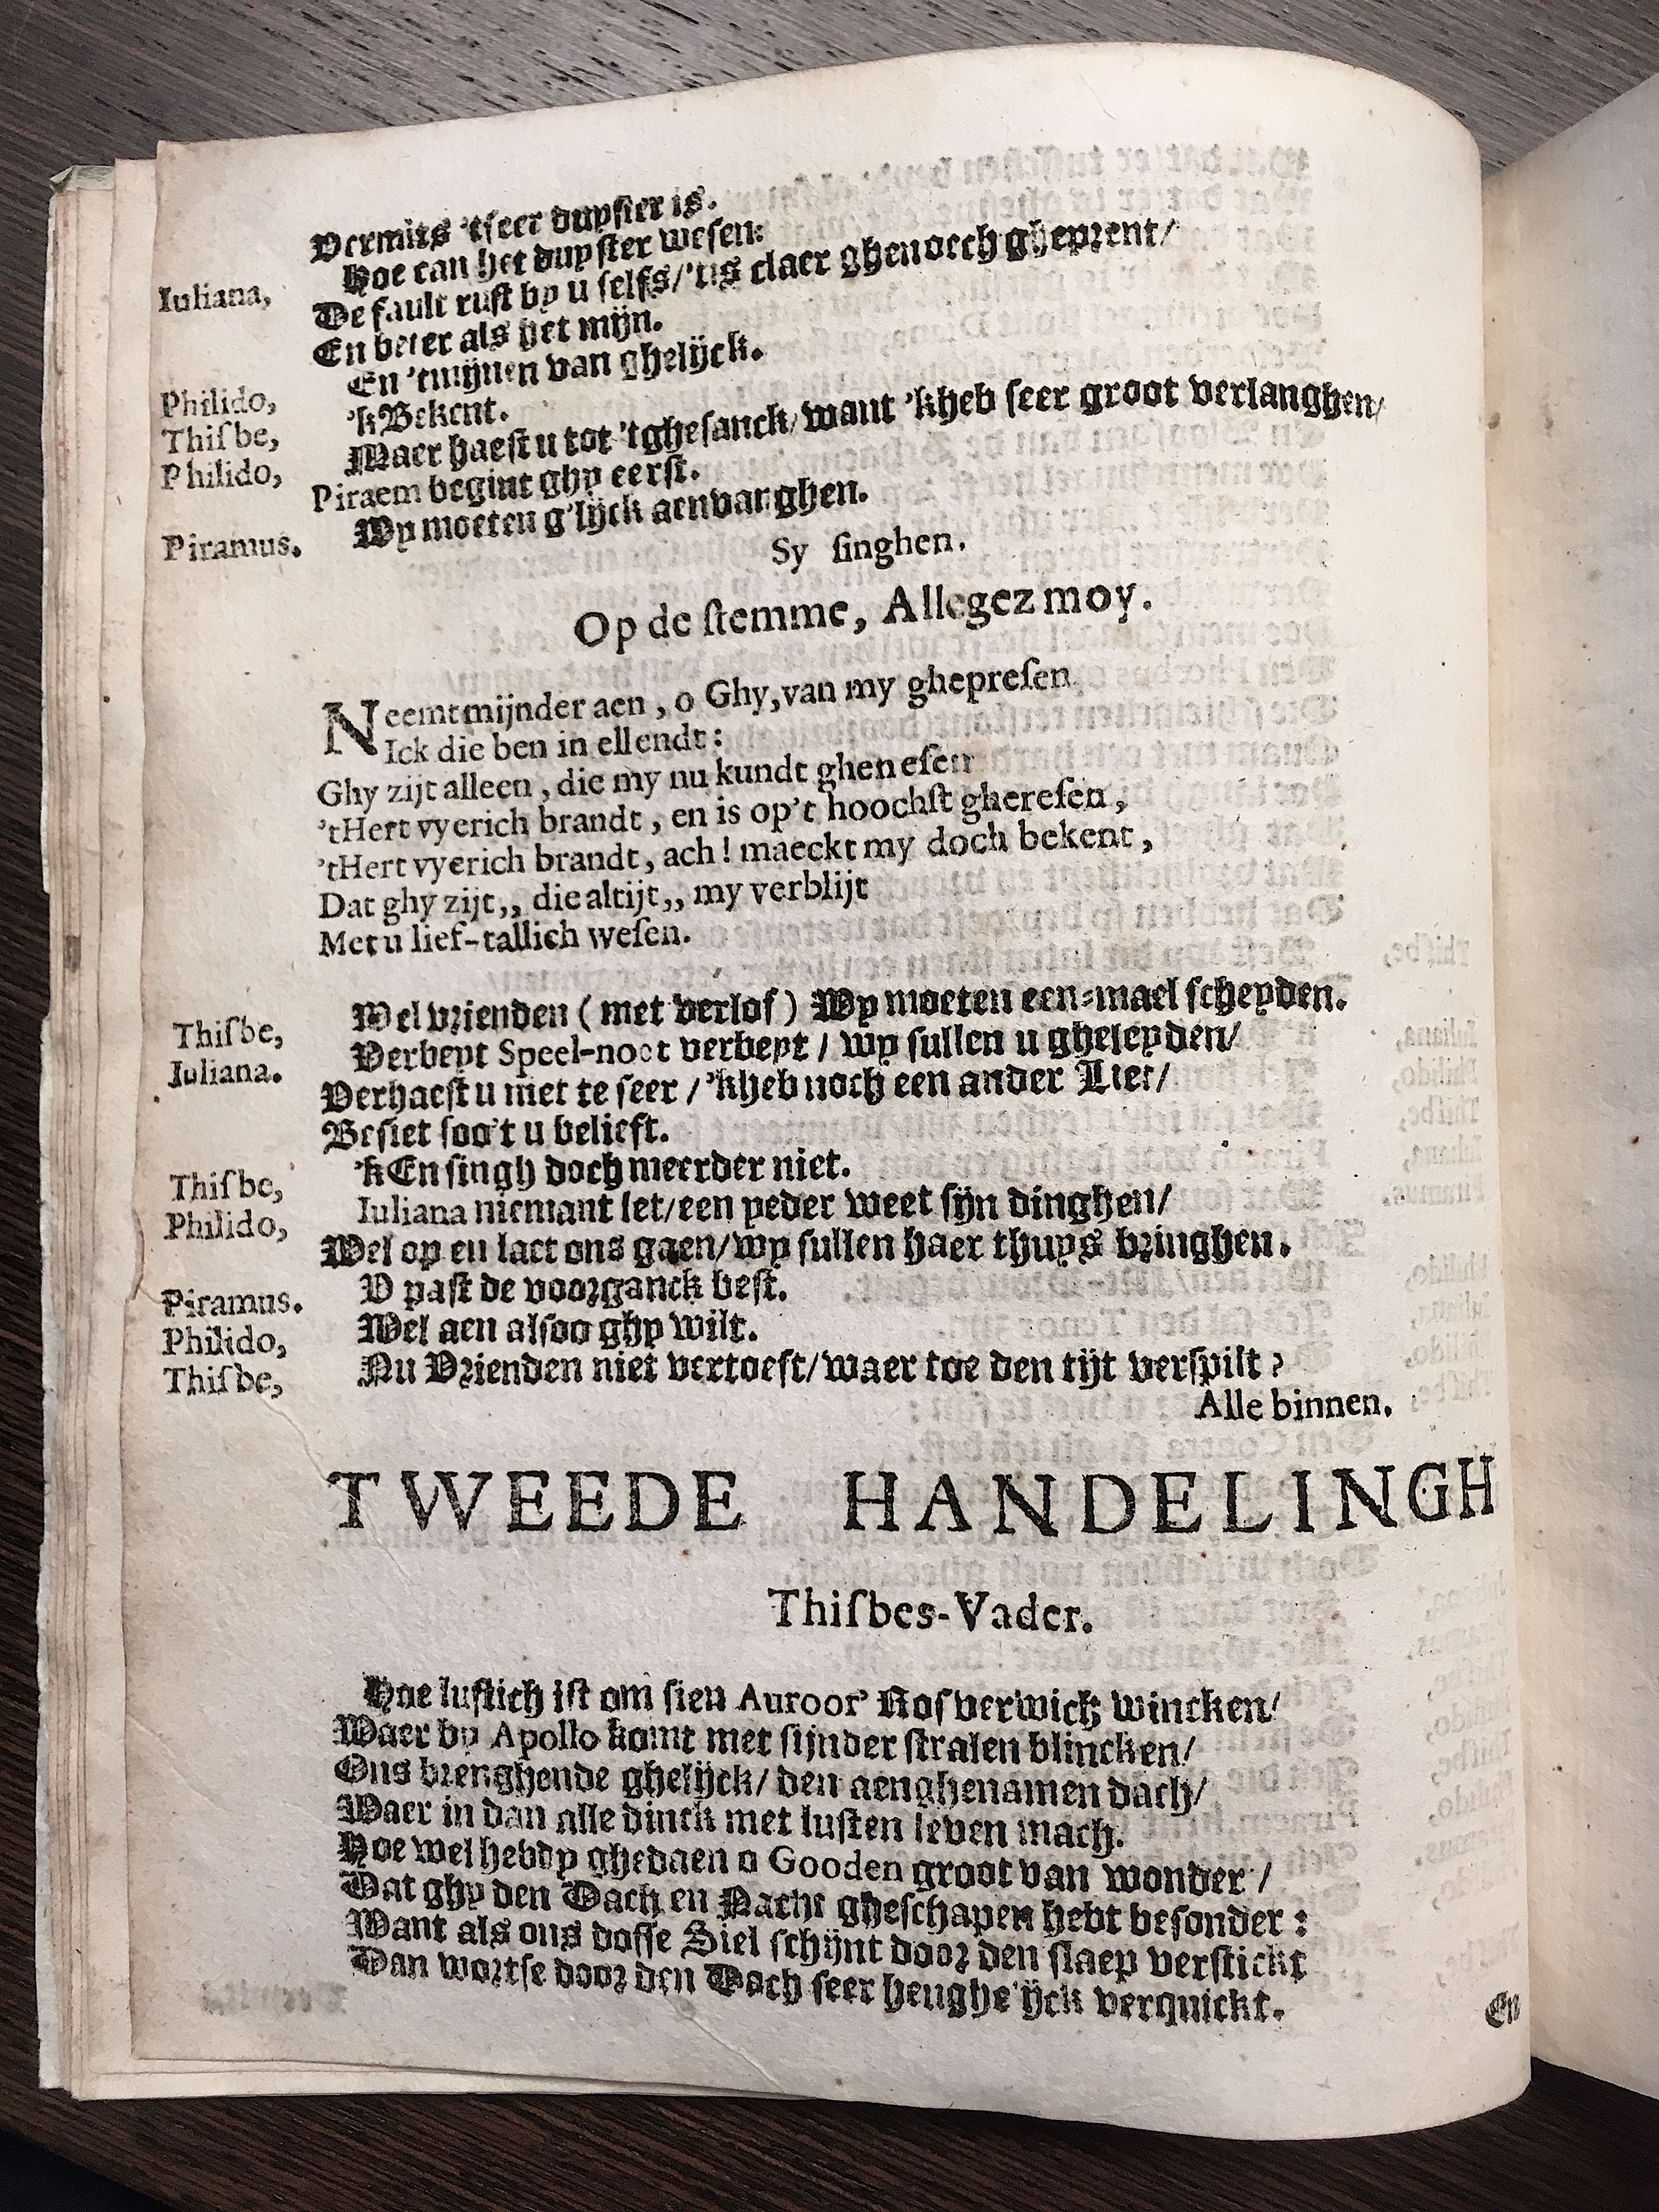 Vermits 'tseer duyster is.
Iuliana, Hoe can het duyster wesen:
De fault rust by u selfs/'tis claer ghenoech gheprent/
En beter als het mijn.
Philido, En 'tmijnen van ghelijck.
Thisbe, 'kBekent.
Philido, Maer haest u tot 'tghesanck/want 'kheb seer groot verlanghen/
Piraem begint ghy eerst.
Piramus. Wy moeten g'lijck aenvanghen.
Sy singhen.
Op de stemme, Allegez moy.
Neemt mijnder aen, o Ghy, van my ghepresen
Ick die ben in ellendt:
Ghy zijt alleen, die my nu kundt ghenesen
'tHert vyerich brandt, en is op't hoochst gheresen,
'tHert vyerich brandt, ach! maeckt my doch bekent,
Dat ghy zijt,, die altijt,, my verblijt
Met u lief-tallich wesen.
Thisbe, Wel vrienden (met verlof) Wy moeten een-mael scheyden.
Iuliana. Verbeyt Speel-noot verbeyt / wy sullen u gheleyden/
Verhaest u niet te seer / 'kheb noch een ander Liet/
Besiet soo't u belieft.
Thisbe, 'kEn singh doch meerder niet.
Philido, Iuliana niemant let/een yeder weet sijn dinghen/
Wel op en laet ons gaen/wy sullen haer thuys bringhen.
Piramus. V past de voorganck best.
Philido, Wel aen alsoo ghy wilt.
Thisbe, Nu Vrienden niet vertoeft/waer toe den tijt verspilt?
Alle binnen.
TWEEDE HANDELINGH
Thisbes-Vader.
Hoe lustich ist om sien Auroor' Rosverwich wincken/
Waer by Apollo komt met sijnder stralen blincken/
Ons brenghende ghelijck/ den aenghenamen dach/
Waer in dan alle dinck met lusten leven mach.
Hoe wel hebdy ghedaen o Gooden groot van wonder/
Dat ghy den Dach en Nacht gheschapen hebt besonder:
Want als ons doffe Siel schijnt door den slaep verstickt
Dan wortse door den Dach seer heughe'ijck verquickt.
En